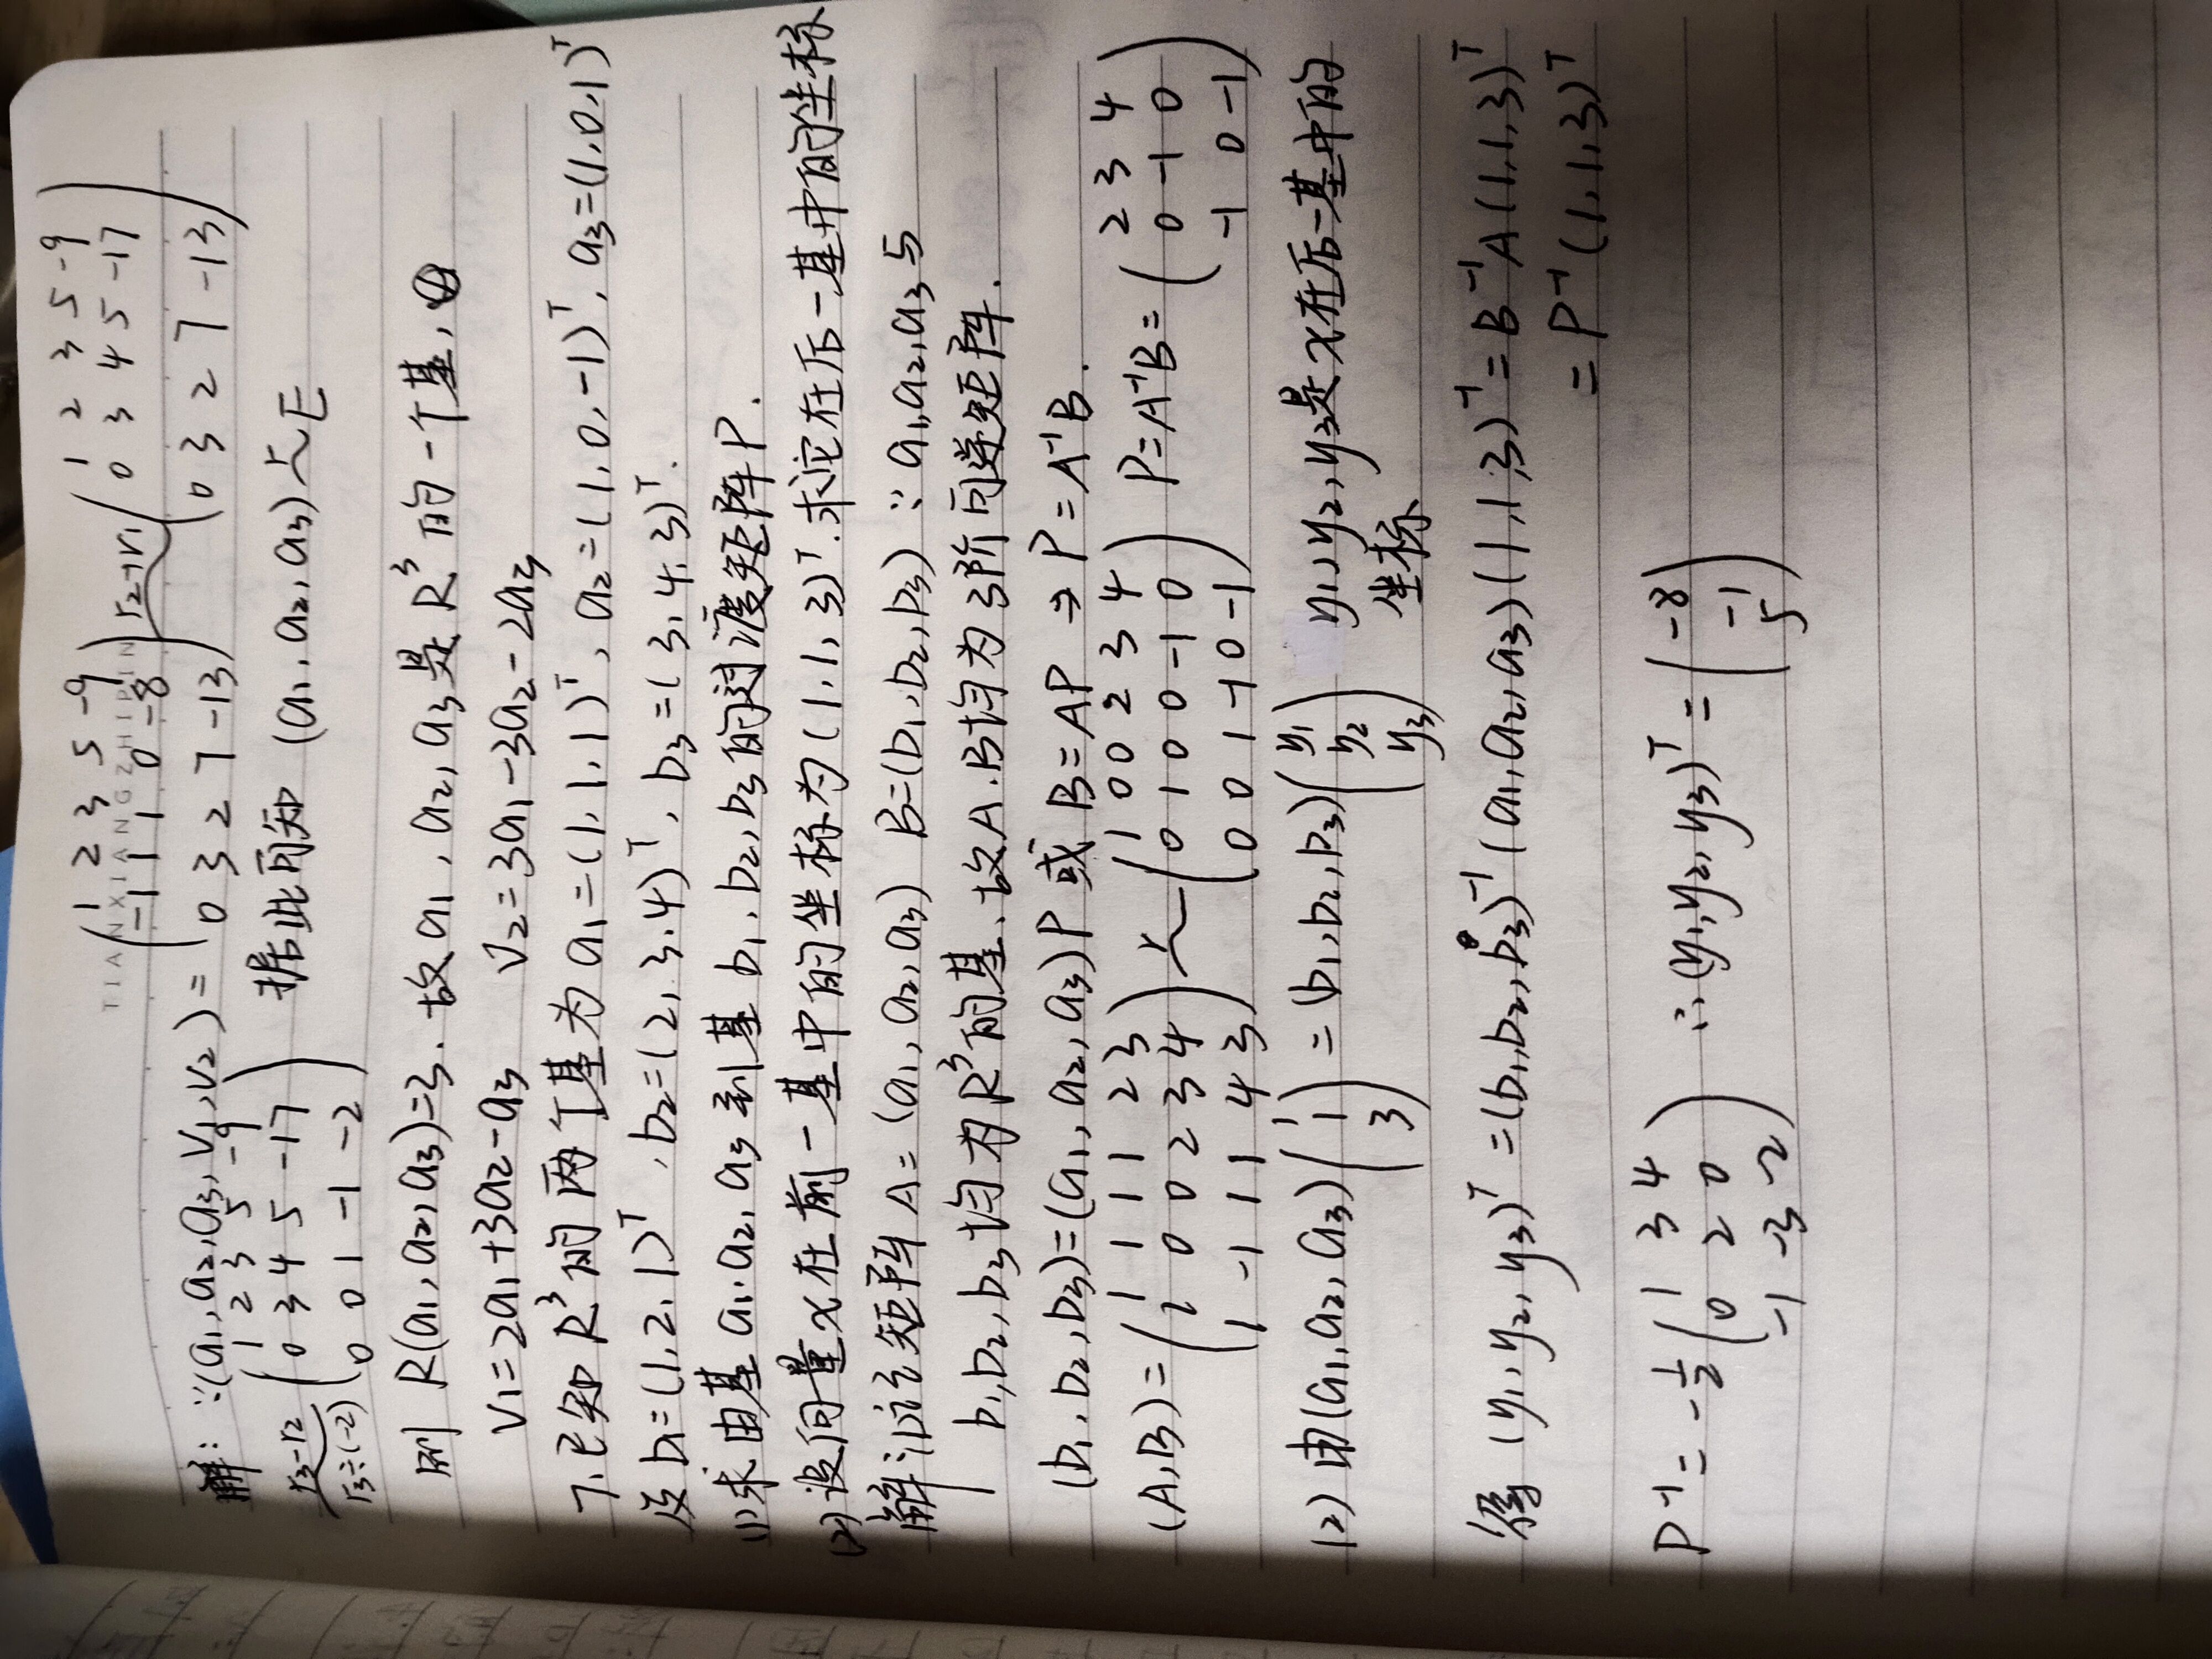 TIANXIANGZHIPIN
解: ∵(a₁,a₂,a₃,v₁,v₂) = (1 2 3 5 -9
-1 1 1 0 -8
0 3 2 7 -13) r₂+r₁ ~ (1 2 3 5 -9
0 3 4 5 -17
0 3 2 7 -13)
r₃-r₂ r₃÷(-2) (1 2 3 5 -9
0 3 4 5 -17
0 0 1 -1 -2) 据此可知 (a₁,a₂,a₃) ~ E
则 R(a₁,a₂,a₃)=3. 故a₁,a₂,a₃是R³的一个基,
v₁=2a₁+3a₂-a₃ v₂=3a₁-3a₂-2a₃
7.已知R³的两个基为a₁=(1,1,1)ᵀ, a₂=(1,0,-1)ᵀ, a₃=(1,0,1)ᵀ
及 b₁=(1,2,1)ᵀ, b₂=(2,3,4)ᵀ, b₃=(3,4,3)ᵀ.
(1)求由基a₁,a₂,a₃到基b₁,b₂,b₃的过渡矩阵P.
(2)设向量x在前一基中的坐标为(1,1,3)ᵀ.求它在后一基中的坐标
解:(1)记矩阵A=(a₁,a₂,a₃) B=(b₁,b₂,b₃) ∵a₁,a₂,a₃与
b₁,b₂,b₃均为R³的基,故A.B均为3阶可逆矩阵.
(b₁,b₂,b₃)=(a₁,a₂,a₃)P 或 B=AP ⇒ P=A⁻¹B.
(A,B)=(1 1 1 1 2 3
1 0 0 2 3 4
1 -1 1 1 4 3) ~ (1 0 0 2 3 4
0 1 0 0 -1 0
0 0 1 -1 0 -1) P=A⁻¹B=(2 3 4
0 -1 0
-1 0 -1)
(2)由(a₁,a₂,a₃)(1
1
3)=(b₁,b₂,b₃)(y₁
y₂
y₃) y₁,y₂,y₃是x在后一基中的
坐标
得 (y₁,y₂,y₃)ᵀ=(b₁,b₂,b₃)⁻¹(a₁,a₂,a₃)(1,1,3)ᵀ=B⁻¹A(1,1,3)ᵀ
=P⁻¹(1,1,3)ᵀ
P⁻¹=-½(1 3 4
0 2 0
-1 -3 -2) ∴(y₁,y₂,y₃)ᵀ=(-8
-1
5)